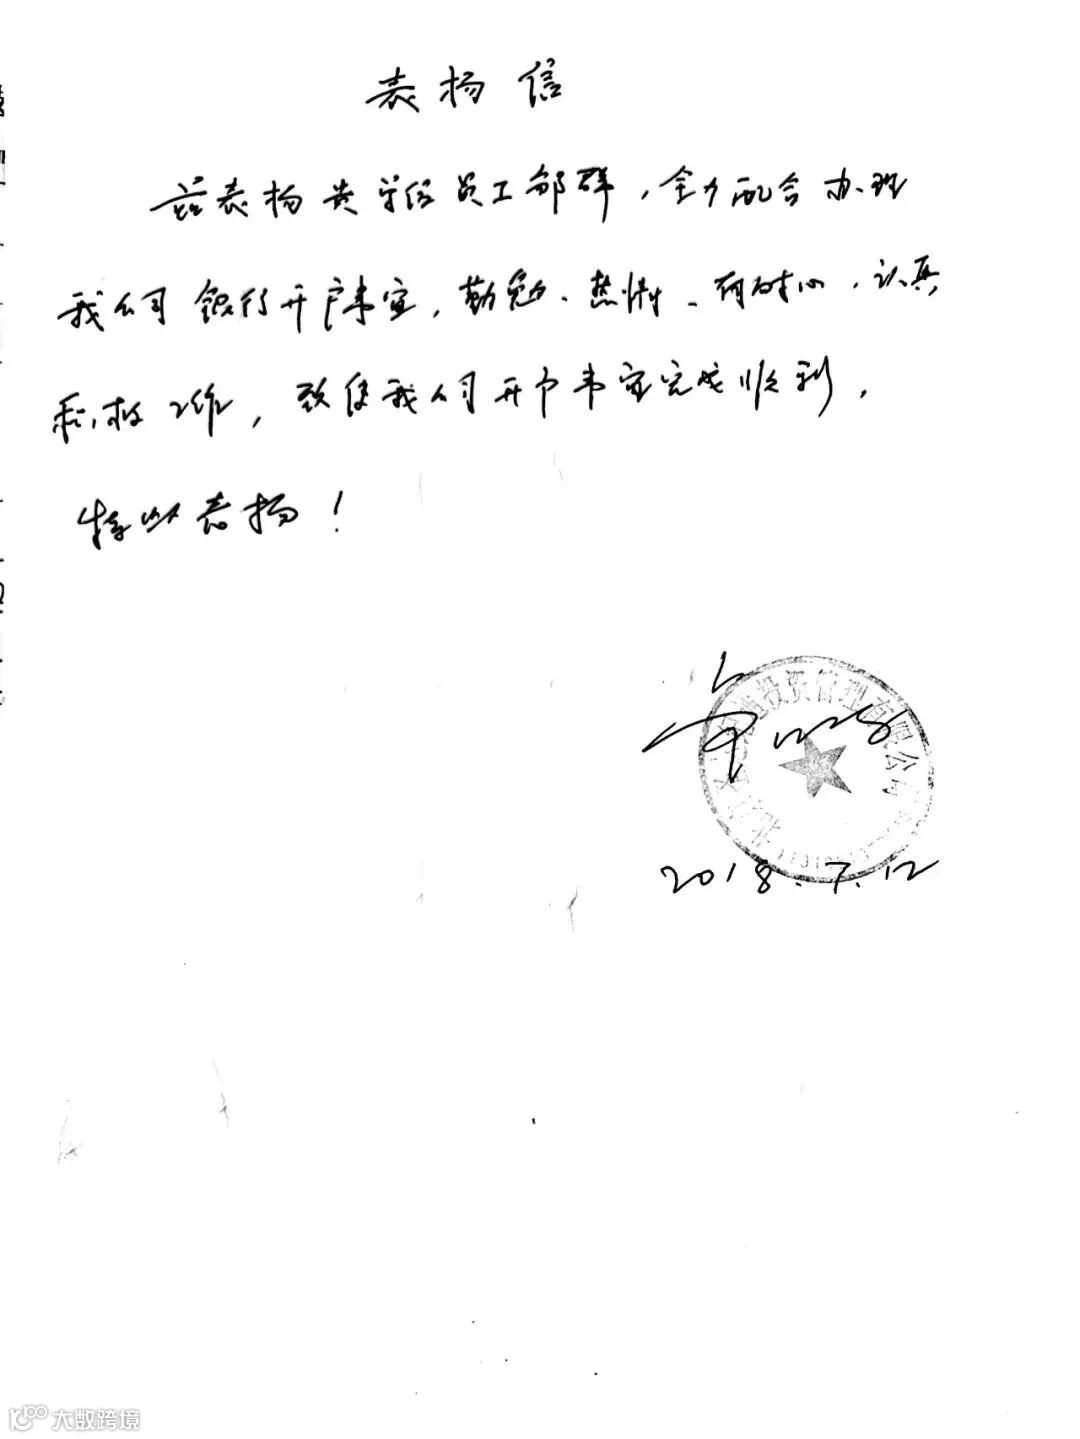 表扬信
兹表扬贵单位员工邹群，全力配合办理
我公司银行开户事宜，勤勉、热情、有耐心，认真
积极工作，致使我公司开户事宜完成顺利，
特以表扬！
投资管理有限公司
2018.7.12
大数跨境